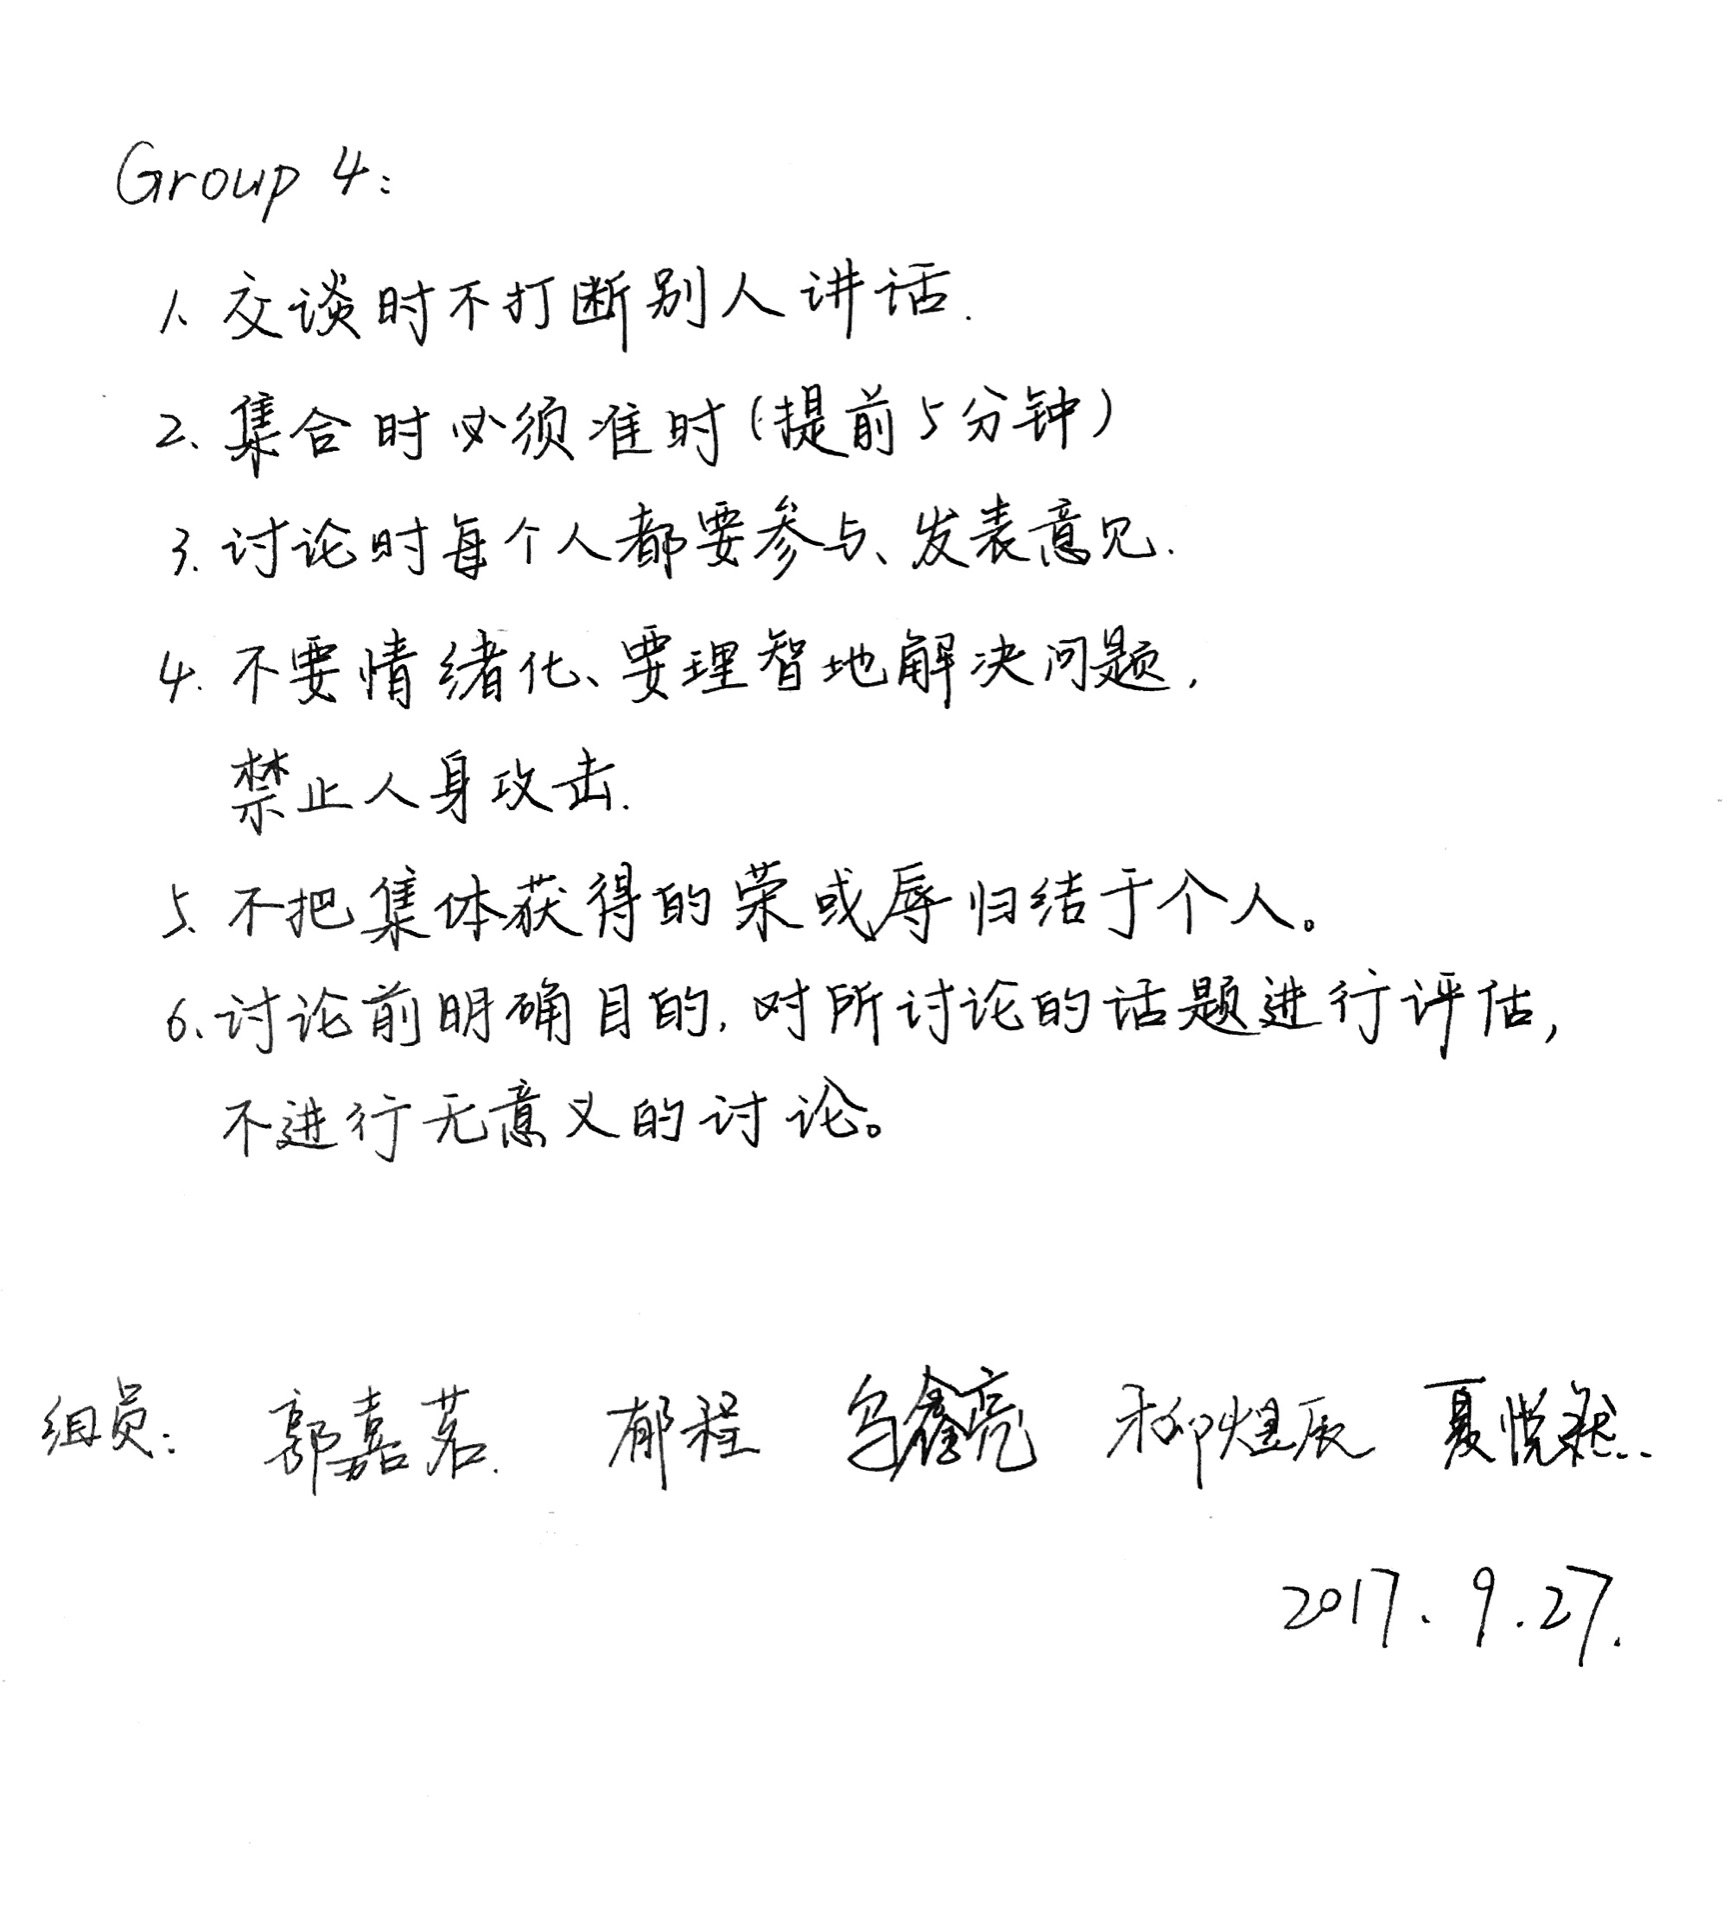 Group 4:
1. 交谈时不打断别人讲话.
2、集合时必须准时(提前5分钟)
3. 讨论时每个人都要参与、发表意见.
4. 不要情绪化、要理智地解决问题,
禁止人身攻击.
5. 不把集体获得的荣或辱归结于个人。
6、讨论前明确目的,对所讨论的话题进行评估,
不进行无意义的讨论。
组员: 郭嘉茗. 郁程 乌鑫亮 柳煜辰 夏悦然..
2017.9.27.